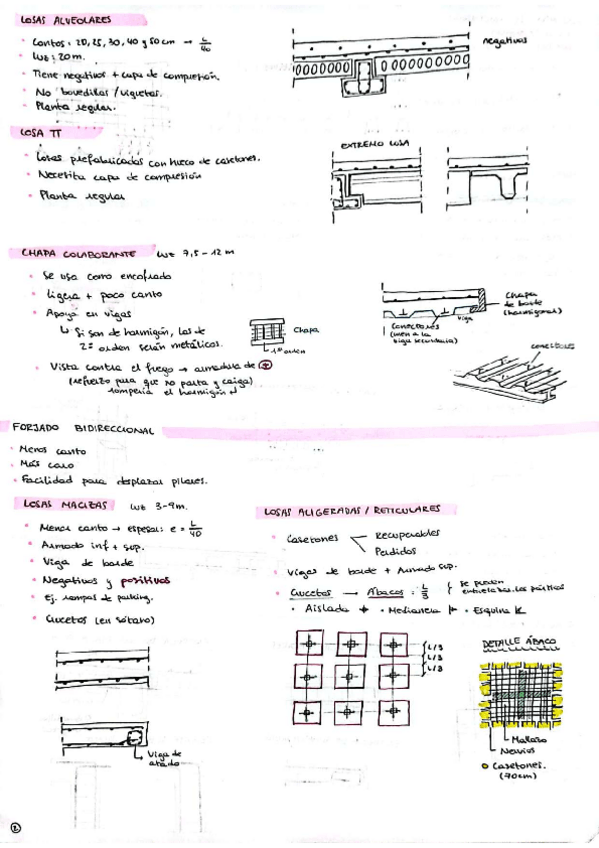 LOSAS ALVEOLARES
• Cantos: 20, 25, 30, 40 y 50 cm → L/40
• Luz: 20 m.
• Tiene negativos + capa de compresión.
• No bovedillas / viguetas.
• Planta regular.
negativos
LOSA TT
• Losas prefabricadas con hueco de casetones.
• Necesita capa de compresión
• Planta regular
EXTREMO LOSA
CHAPA COLABORANTE Luz 7,5 - 12 m
• Se usa como encofrado
• Ligera + poco canto
• Apoya en vigas
↳ Si son de hormigón, las de
2º orden serán metálicas.
Chapa
1er orden
• Vista contra el fuego → armadura de ⊕
(refuerzo para que no parta y caiga)
rompería el hormigón
Chapa
de borde
(hormigonar)
Conectores
(unen a la
viga secundaria)
viga
conectores
FORJADO BIDIRECCIONAL
• Menos canto
• Más caro
• Facilidad para desplazar pilares.
LOSAS MACIZAS Luz 3-9m.
• Menor canto → espesor: e = L/40
• Armado inf + sup.
• Viga de borde
• Negativos y positivos
• Ej. rampas de parking.
• Crucetas (en sótano)
Viga de
atado
LOSAS ALIGERADAS / RETICULARES
• Casetones
Recuperables
Perdidos
• Vigas de borde + Armado sup.
• Crucetas → Ábacos: L/3 { se pueden
• Aislada • Medianera • Esquina
L/3
L/3
L/3
DETALLE ÁBACO
Mallazo
Nervios
Casetones.
(70cm)
2